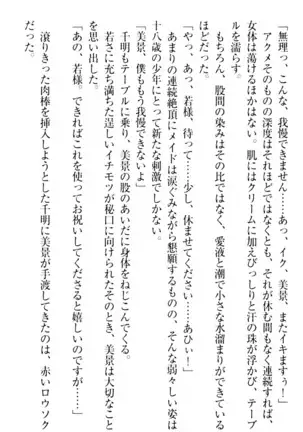 「無理っ、こんな、我慢できませ……あっ、イク、美景、またイキますーっ！」
アクメそのものの深度はそれほどではなくとも、それが休む間もなく連続すれば、
女体は蕩けるほかはない。肌にはクリームに加えびっしりと汗の珠が浮かび、テーブ
ルを濡らす。
もちろん、股間の染みはその比ではなく、愛液と潮で小さな水溜まりができている
ほどだった。
「やっ、あっ、若様、待って……少し、休ませてくださ……あひぃー！」
あまりの連続絶頂にメイドは涙ぐみながら懇願するものの、そんな弱々しい姿は
十八歳の少年にとって新たな刺激でしかない。
「美景、僕もう我慢できないよ」
千明もテーブルに乗り、美景の股のあいだに身体をねじこんでくる。
若さに充ちた逞しいイチモツが秘口に向けられたそのとき、美景は大切なこと
を思い出した。
「あの、若様。できればこれを使ってお祝いしてくださると嬉しいのですが……」
滾りきった肉棒を挿入しようとした千明に美景が手渡してきたのは、赤いロウソク
だった。